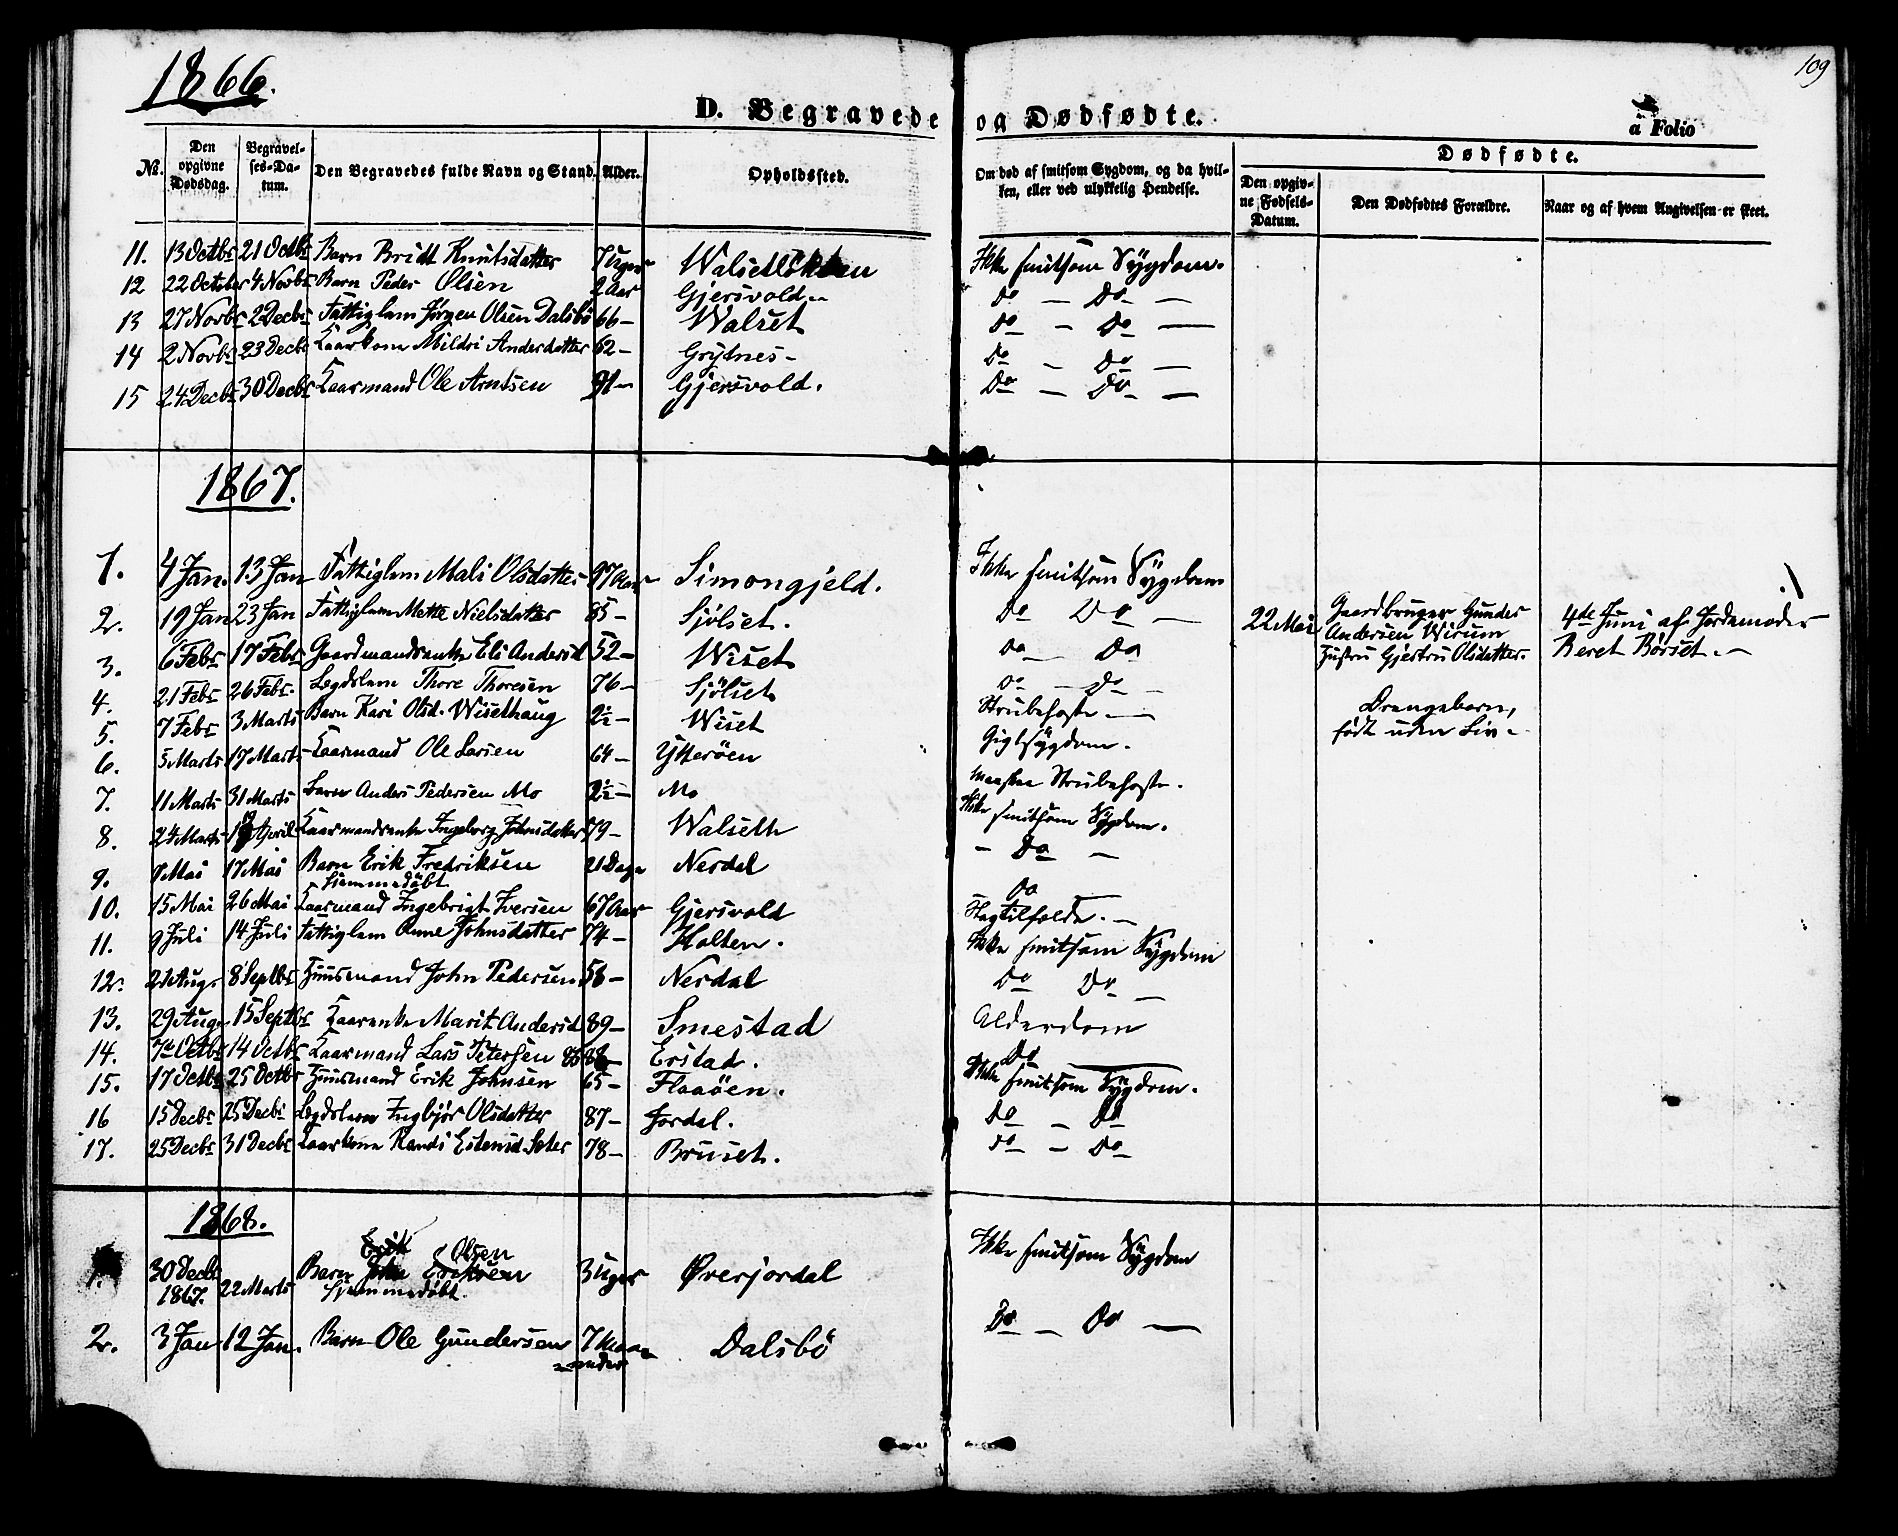 1866.
109
D. Begravede og Dødfødte.
a Folio
No. Den opgivne Dødsdag. Begravelses-Datum. Den Begravedes fulde Navn og Stand. Alder. Opholdssted. Om død af smitsom Sygdom, og da hvilken, eller ved ulykkelig Hendelse. Dødfødte. Den opgivne Fødsels-Datum. Den Dødfødtes Forældre. Naar og af hvem Angivelsen er skeet.
11. 13 Octbr 21 Octbr Barn Bridt Knutsdatter 7 Uger Walsetløkken Ikke smitsom Sygdom.
12 22 October 4 Novbr Barn Peder Olsen 2 Aar Gjersvold Do — Do —
13 27 Novbr 2 Decbr Fattiglem Jørgen Olsen Dalsbö 66 — Walset Do — Do —
14 2 Novbr 23 Decbr Kaarkone Mildri Andersdatter 62 — Grytnes — Do — Do —
15 24 Decbr 30 Decbr Kaarmand Ole Arntsen 91 — Gjersvold. Do — Do —
1867.
1. 4 Jan. 13 Jan Fattiglem Mali Olsdatter 97 Aar Simongjeld. Ikke smitsom Sygdom
2. 19 Jan 23 Jan Fattiglem Mette Nielsdatter 85 — Sjölset. Do Do —
22 Mai Gaardbruger Gunder Andersen Wirum Hustru Gjertru Olsdatter. 4de Juni af Jordemoder Beret Børset. —
3. 6 Febr 17 Febr Gaardmandsenke Eli Andersd 52 — Wiset Do — Do
4. 21 Febr 26 Febr. Legdslem Thore Thoresen 76 — Sjölset Do — Do —
Drengebarn, født uden Liv —
5. 7 Febr 3 Marts Barn Kari Olsd. Wisethaug 2½ — Wiset Strubehoste —
6. 5 Marts 17 Marts Kaarmand Ole Larsen 64 — Ytteröen Gigtsygdom.
7. 11 Marts 31 Marts Barn Anders Pedersen Mo 2½ — Mo maaskee Strubehoste.
8. 24 Marts April Kaarmandsenke Ingeborg Johnsdatter 79 — Walseth Ikke smitsom Sygdom.
9. 7 Mai 17 Mai Barn Erik Fredriksen 21 Dage Nerdal — Do —
hjemmedöbt
10. 15 Mai 26 Mai Kaarmand Ingebrigt Iversen 67 Aar Gjersvold Do —
Slagtilfelde. —
11. 9 Juli 14 Juli Fattiglem Anne Johnsdatter 74 — Holten. Ikke smitsom Sygdom
12. 21 Aug. 8 Septbr Huusmand John Pedersen 56 — Nerdal Do Do —
13. 29 Aug. 15 Septbr Kaarenke Marit Andersd 89 — Smestad Alderdom
14. 7de Octbr 14 Octbr Kaarmand Lars Petersen 88 Eristad. Do —
15. 17 Octbr 25 Octbr Huusmand Erik Johnsen 65 — Flaaöen. Ikke smitsom Sygdom.
16 15 Decbr 25 Decbr Legdslem Ingbjør Olsdatter 87 — Jordal. Do — Do
17. 25 Decbr 31 Decbr Kaarkone Randi Estensd. 78 — Bruset. Do — Do
1868.
1. 30 Decbr 1867. 22 Marts Barn Erik Olsen 3 Uger Øverjordal Ikke smitsom Sygdom
John Eriksen
hjemmedöbt.
2. 3 Jan 12 Jan. Barn Ole Gundersen 7 Maaneder Dalsbö Do — Do —